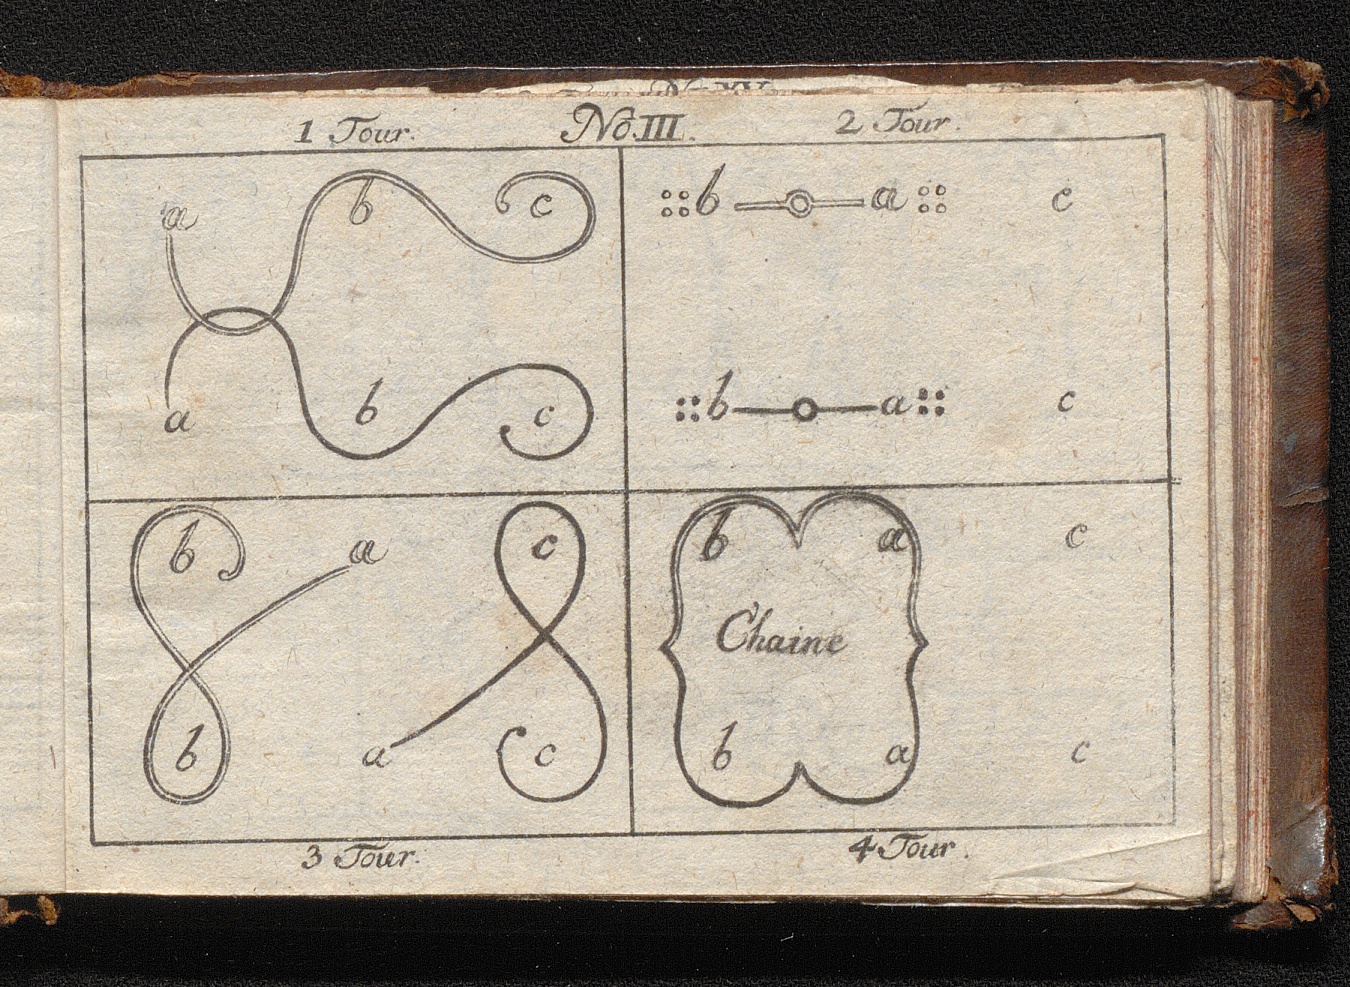 No. XV
1 Tour. No. III. 2 Tour.
a b c
a b c
b a c
b a c
b a c
b a c
b a c
Chaine
b a c
3 Tour. 4 Tour.